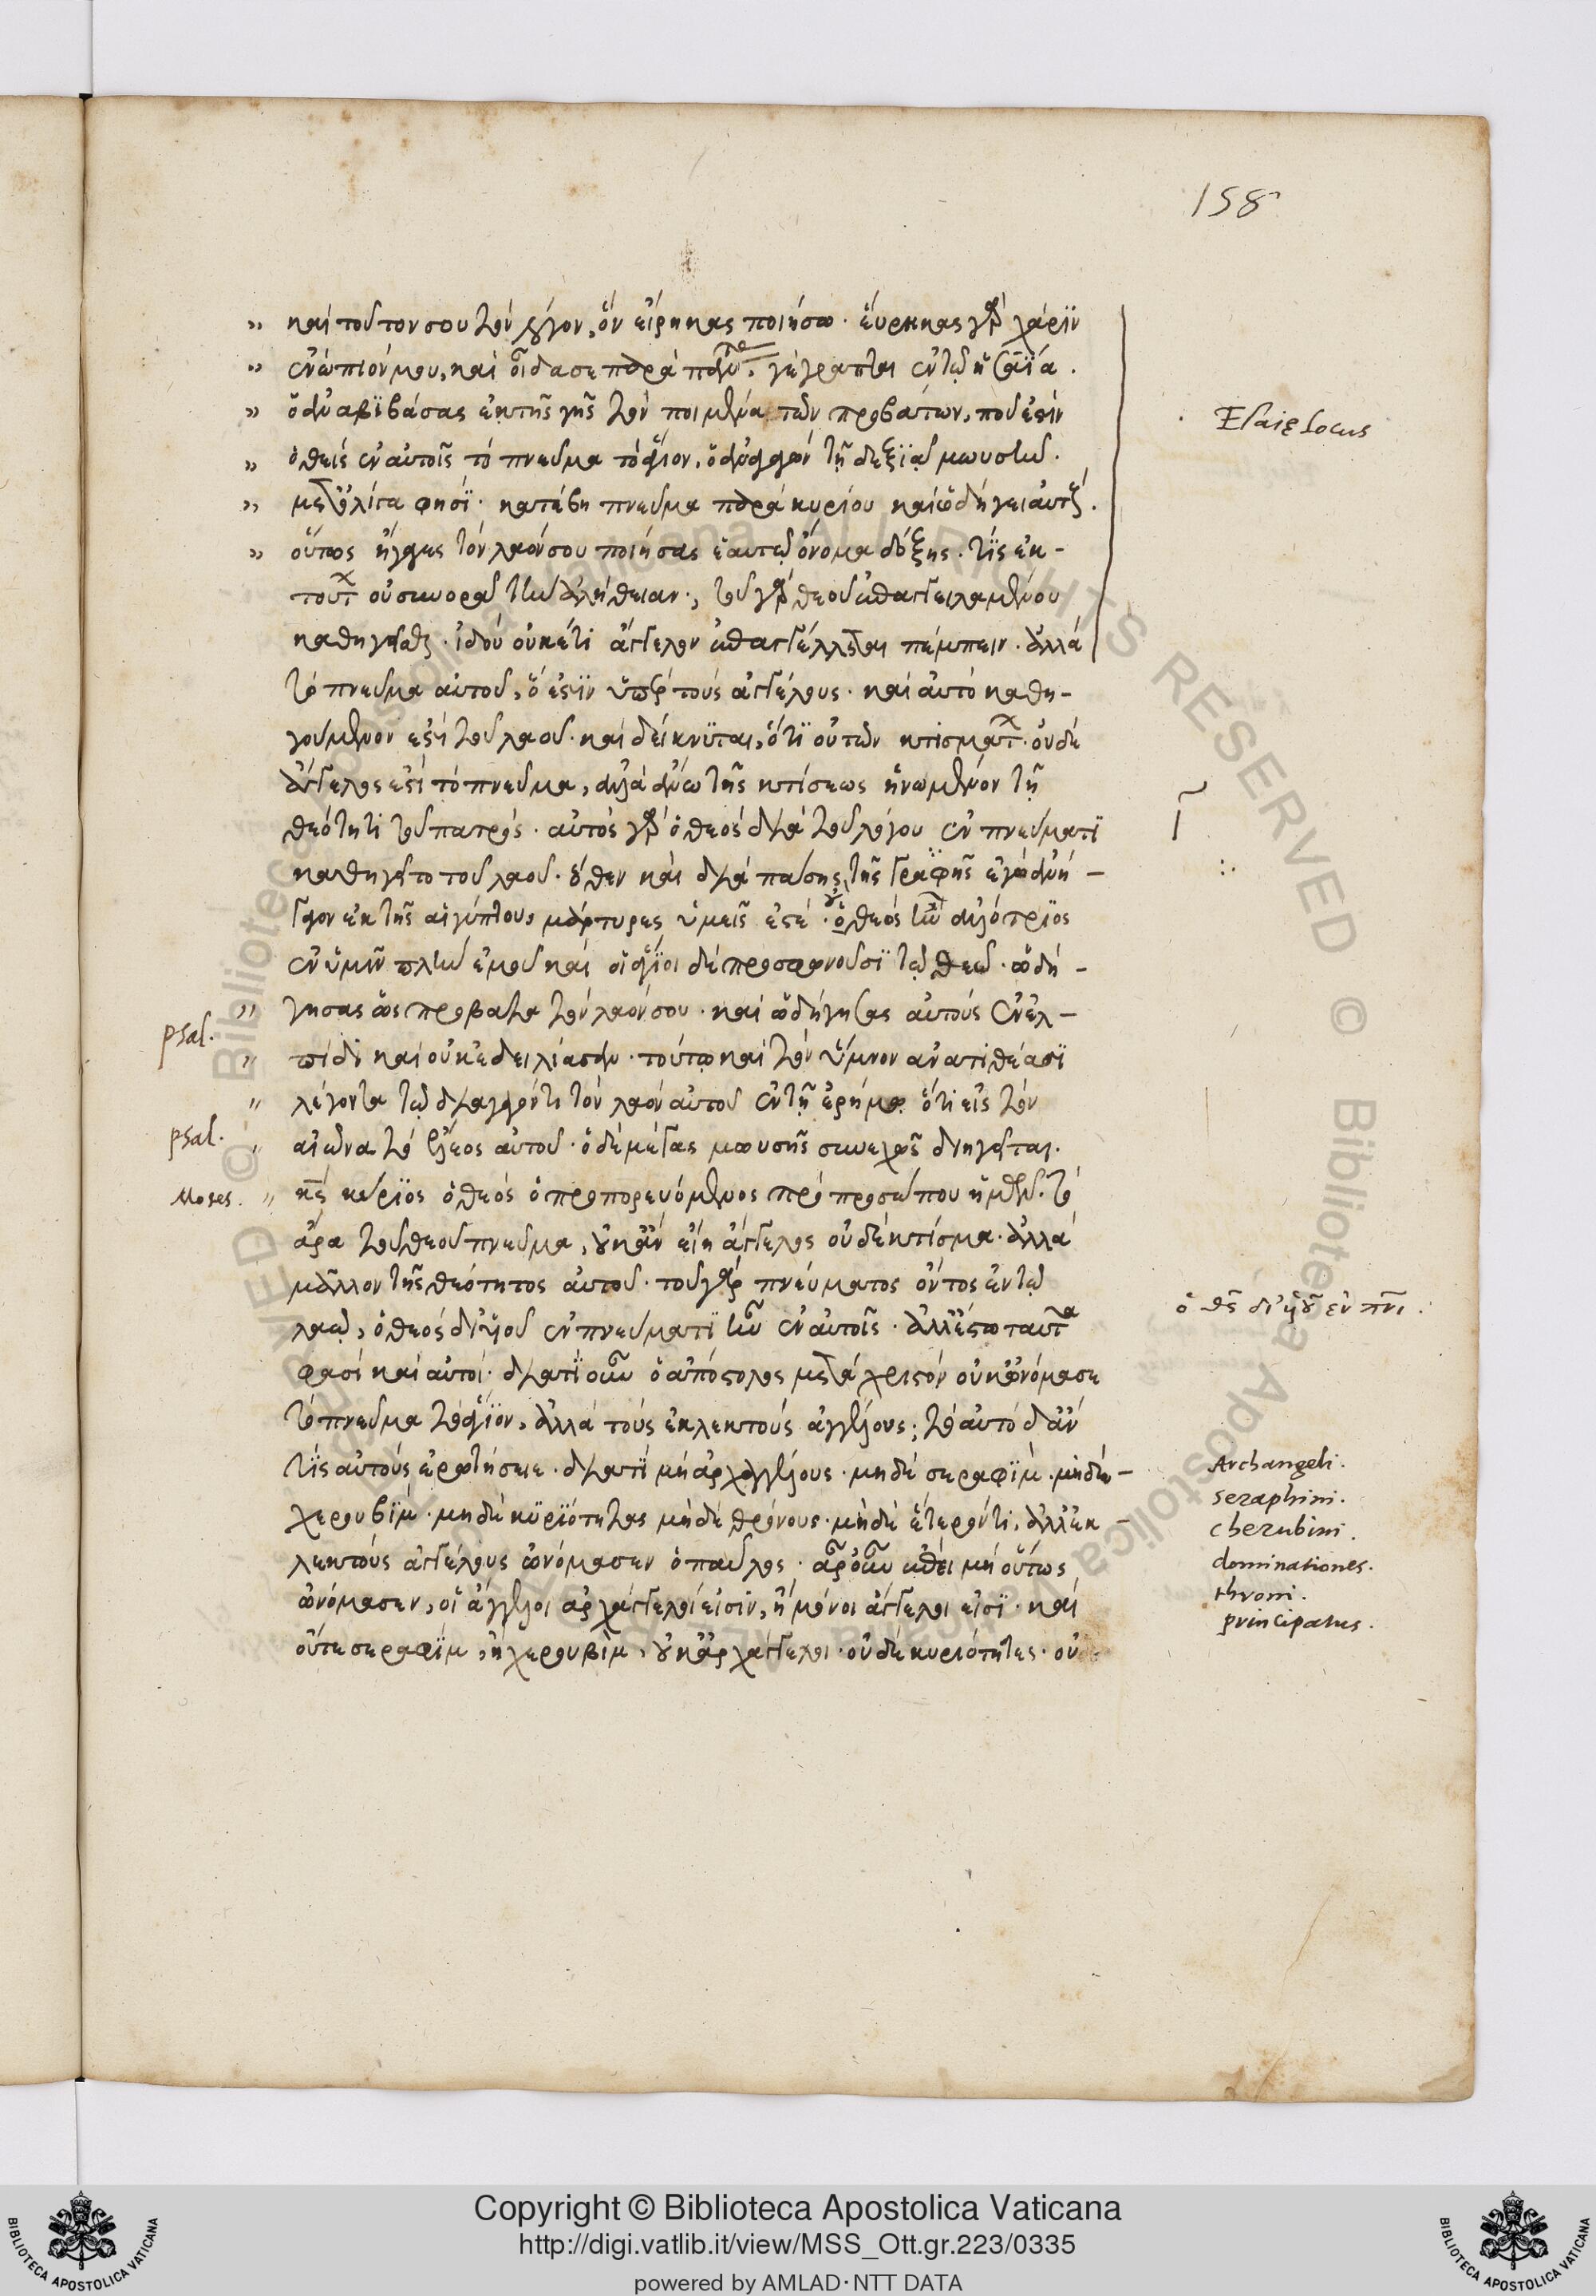 158
καὶ τοῦτον σου τὸν λόγον, ὃν εἴρηκας ποιήσω· εὕρηκας γὰρ χάριν
ἐνώπιόν μου, καὶ οἶδά σε παρὰ πάντας· γέγραπται ἐν τῷ ἡσαΐα.
ὁ ἀναβιβάσας ἐκ τῆς γῆς τὸν ποιμένα τῶν προβάτων, ποῦ ἐστὶν
ὁ θεὶς ἐν αὐτοῖς τὸ πνεῦμα τὸ ἅγιον, ὁ ἀγαγὼν τῇ δεξιᾷ μωυσῆν.
μετ' ὀλίγα φησί· κατέβη πνεῦμα παρὰ κυρίου καὶ ὡδήγει αὐτούς.
οὕτως ἤγαγες τὸν λαόν σου ποιῆσαι ἑαυτῷ ὄνομα δόξης. τίς ἐκ-
τούτων οὐ συνορᾷ τὴν ἀλήθειαν· τοῦ γὰρ θεοῦ ἐπαγγειλαμένου
καθηγεῖσθαι· ἰδοὺ οὐκέτι ἄγγελον ἐπαγγέλλεται πέμπειν. ἀλλὰ
τὸ πνεῦμα αὐτοῦ, ὅ ἐστιν ὑπὲρ τοὺς ἀγγέλους. καὶ αὐτὸ καθη-
γούμενον ἐστὶ τοῦ λαοῦ. καὶ δείκνυται, ὅτι οὐ τῶν κτισμάτων. οὐδὲ
ἄγγελος ἐστὶ τὸ πνεῦμα, ἀλλὰ ἄνω τῆς κτίσεως ἡνωμένον τῇ
θεότητι τοῦ πατρός. αὐτὸς γὰρ ὁ θεὸς διὰ τοῦ λόγου ἐν πνεύματι
καθηγεῖτο τοῦ λαοῦ. ὅθεν καὶ διὰ πάσης τῆς γραφῆς ἐγὼ ἀνή-
γαγον ἐκ τῆς αἰγύπτου, μάρτυρες ὑμεῖς ἐστέ· οὐ ὁ θεὸς ἦν ἀλλότριος
ἐν ὑμῖν πλὴν ἐμοῦ καὶ οἱ ἅγιοι δὲ προσφωνοῦσι τῷ θεῷ. ὡδή-
γησας ὡς πρόβατα τὸν λαόν σου. καὶ ὡδήγησας αὐτοὺς ἐν ἐλ-
πίδι καὶ οὐκ ἐδειλίασαν. τούτῳ καὶ τὸν ὕμνον ἀνατιθέασι
λέγοντα τῷ διαγαγόντι τὸν λαὸν αὐτοῦ ἐν τῇ ἐρήμῳ ὅτι εἰς τὸν
αἰῶνα τὸ ἔλεος αὐτοῦ. ὁ δὲ μέγας μωυσῆς συνεχῶς διηγεῖται.
κύριος ὁ θεὸς ὁ προπορευόμενος πρὸ προσώπου ἡμῶν. τὸ
ἄρα τοῦ θεοῦ πνεῦμα, οὐκ ἂν εἴη ἄγγελος οὐδὲ κτίσμα. ἀλλὰ
μᾶλλον τῆς θεότητος αὐτοῦ. τοῦ γὰρ πνεύματος ὄντος ἐν τῷ
λαῷ, ὁ θεὸς δι' υἱοῦ ἐν πνεύματι ἦν ἐν αὐτοῖς. ἀλλ' ἔστω ταῦτα
φασὶ καὶ αὐτοί· διατί οὖν ὁ ἀπόστολος μετὰ χριστὸν οὐκ ὠνόμασε
τὸ πνεῦμα τὸ ἅγιον, ἀλλὰ τοὺς ἐκλεκτοὺς ἀγγέλους; τὸ αὐτὸ δ' ἄν
τις αὐτοὺς ἐρωτήσειε. διατί μὴ ἀρχαγγέλους. μηδὲ σεραφίμ. μηδὲ-
χερουβίμ. μηδὲ κυριότητας μηδὲ θρόνους. μηδὲ ἕτερόν τι, ἀλλ' ἐκ-
λεκτοὺς ἀγγέλους ὠνόμασεν ὁ παῦλος. ἆρ' οὖν ἐπεὶ μὴ οὕτως
ὠνόμασεν, οἱ ἄγγελοι ἀρχάγγελοί εἰσιν, ἢ μόνοι ἄγγελοι εἰσί. καὶ
οὔτε σεραφίμ, ἢ χερουβίμ, οὐκ ἀρχάγγελοι. οὐδὲ κυριότητες. οὐ
Esaię locus
psal.
psal.
Moses.
ὁ θς δι' υἱοῦ ἐν πνι.
Archangeli.
seraphini.
cherubini.
dominationes.
throni.
principatus.
Copyright © Biblioteca Apostolica Vaticana
http://digi.vatlib.it/view/MSS_Ott.gr.223/0335
powered by AMLAD·NTT DATA
BIBLIOTECA APOSTOLICA VATICANA
BIBLIOTECA APOSTOLICA VATICANA